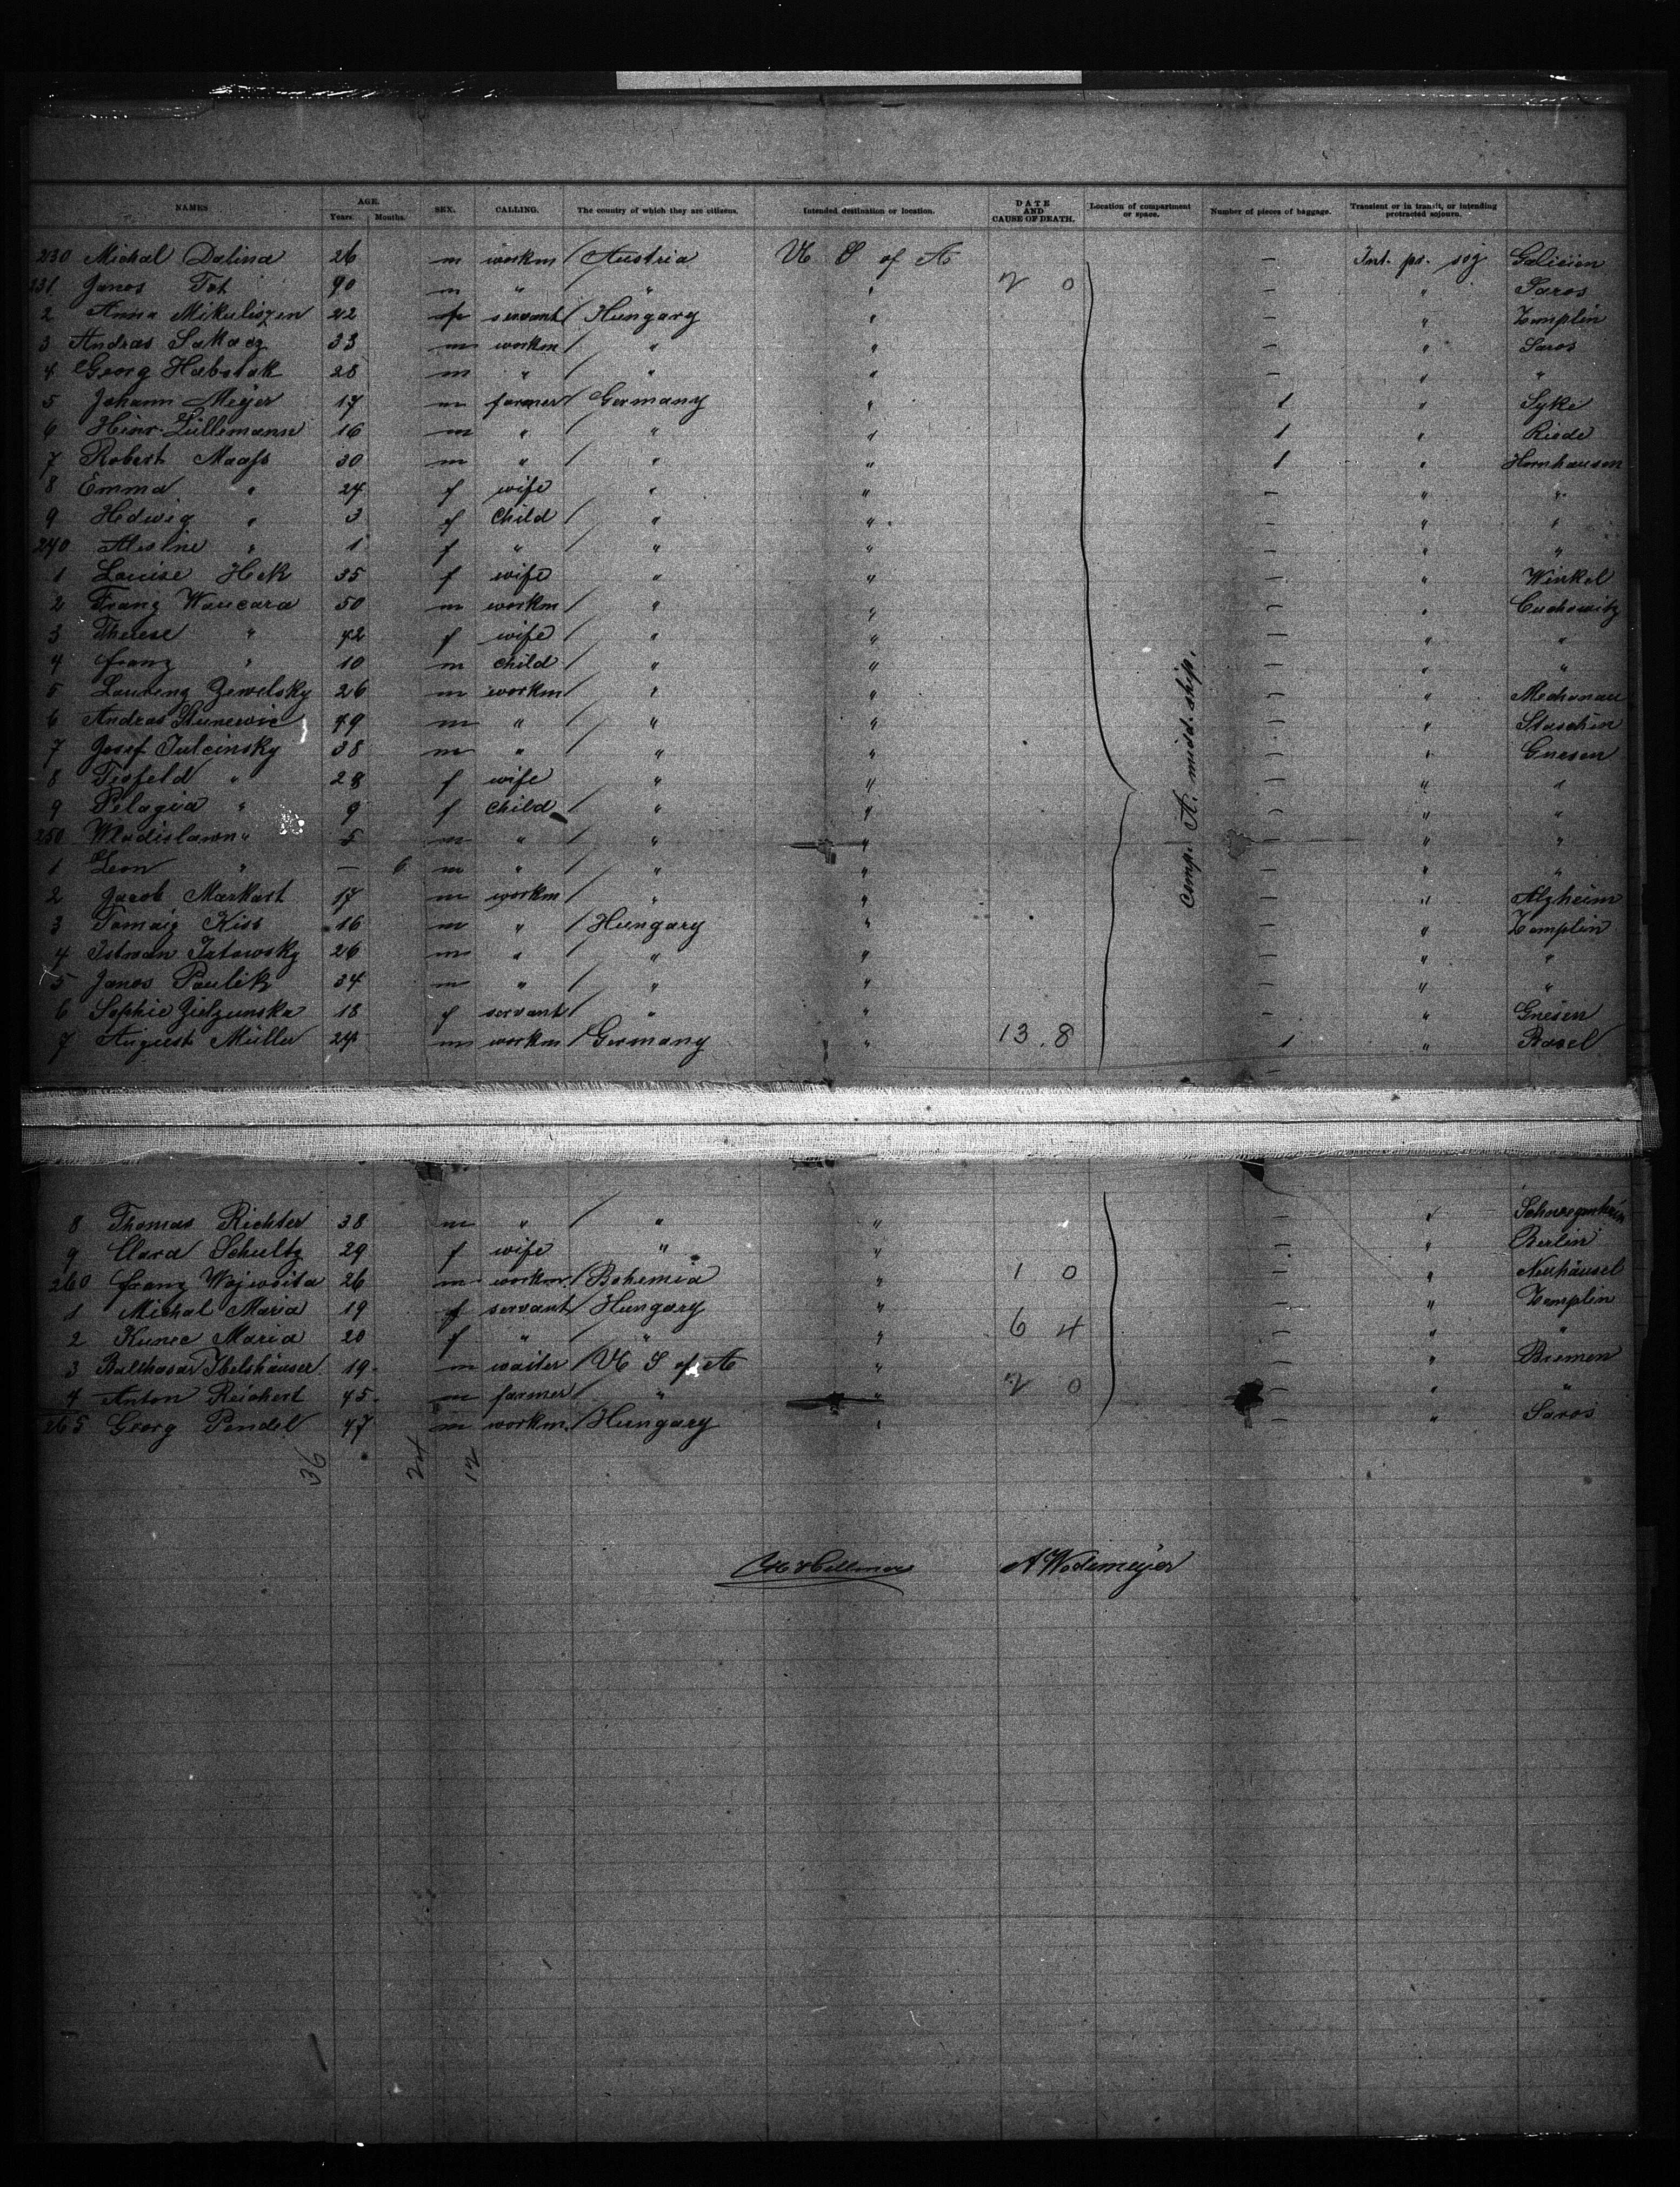 NAMES AGE. Years. Months. SEX. CALLING. The country of which they are citizens. Intended destination or location. DATE AND CAUSE OF DEATH. Location of compartment or space. Number of pieces of baggage. Transient or in transit, or intending protracted sojourn.
230 Michal Dalina 26 m workm / Austria U S of A — Int. pr. soj Galicien
231 Janos Tot 40 m " / " " 2 0 — " Saros
2 Anna Mikuliszen 22 f servant / Hungary " — " Zemplin
3 Andras 33 m workm / " " — " Saros
4 Georg Habstak 28 m " / " " — " "
5 Johann Meyer 17 m farmer / Germany " 1 " Syke
6 Heinr. Lüllemann 16 m " / " " 1 " Riede
7 Robert Maass 30 m " / " " 1 " Hornhausen
8 Emma " 24 f wife " " — " "
9 Hedwig " 3 f child / " " — " "
240 " 1 f " / " " — " "
1 Louise Heck 35 f wife " " — " Winkel
2 Franz Waucara 50 m workm / " " — "
3 Therese " 42 f wife / " " — " "
4 Franz " 10 m child / " " — " "
5 Laurenz Zewelsky 26 m workm / " " — " Mechanau
6 Andras 49 m " / " " — " Staschin
7 Josef Julcinsky 38 m " / " " — " Gnesen
8 " 28 f wife " " — " "
9 Pelagia " 9 f child / " " — " "
250 Wladislawn " 5 m " / " " — " "
1 Leon " — 6 m " / " " — " "
2 Jacob Markart 17 m workm / " " — " Alzheim
3 Kiss 16 m " / Hungary " — " Zemplin
4 Istvan Istowsky 26 m " / " " — " "
5 Janos Paulik 34 m " / " " — " "
6 Sophie Zielzunska 18 f servant / " " — " Gnesen
7 August Müller 24 m workm / Germany " 13.8 1 " Basel
Comp. A. midd. ship.
8 Thomas Richter 38 m " / " " — "
9 Clara Schultz 29 f wife " " — " Berlin
260 Franz Wojwoita 26 m workm / Bohemia " 1 0 — " Neuhäusel
1 Michal Maria 19 f servant / Hungary " — " Zemplin
2 Kunec Maria 20 f " / " " 6 4 — " "
3 Balthasar Ibelshäuser 19 m waiter / U S of A " — " Bremen
4 Anton Reichert 45 m farmer / " " 2 0 — " "
265 Georg Pendel 47 m workm. / Hungary " — " Saros
36 24 12
A Wodemeyer